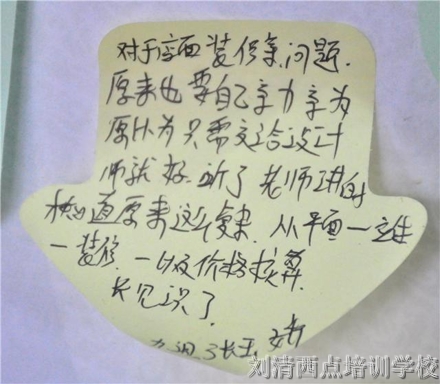 对于店面装修等问题.
原来也要自己亲力亲为
原以为只需交给设计
师就好.听了老师讲的
知道原来这么复杂.从平面一立体
一装修.一以及价格核算.
长见识了
刘清西点培训学校